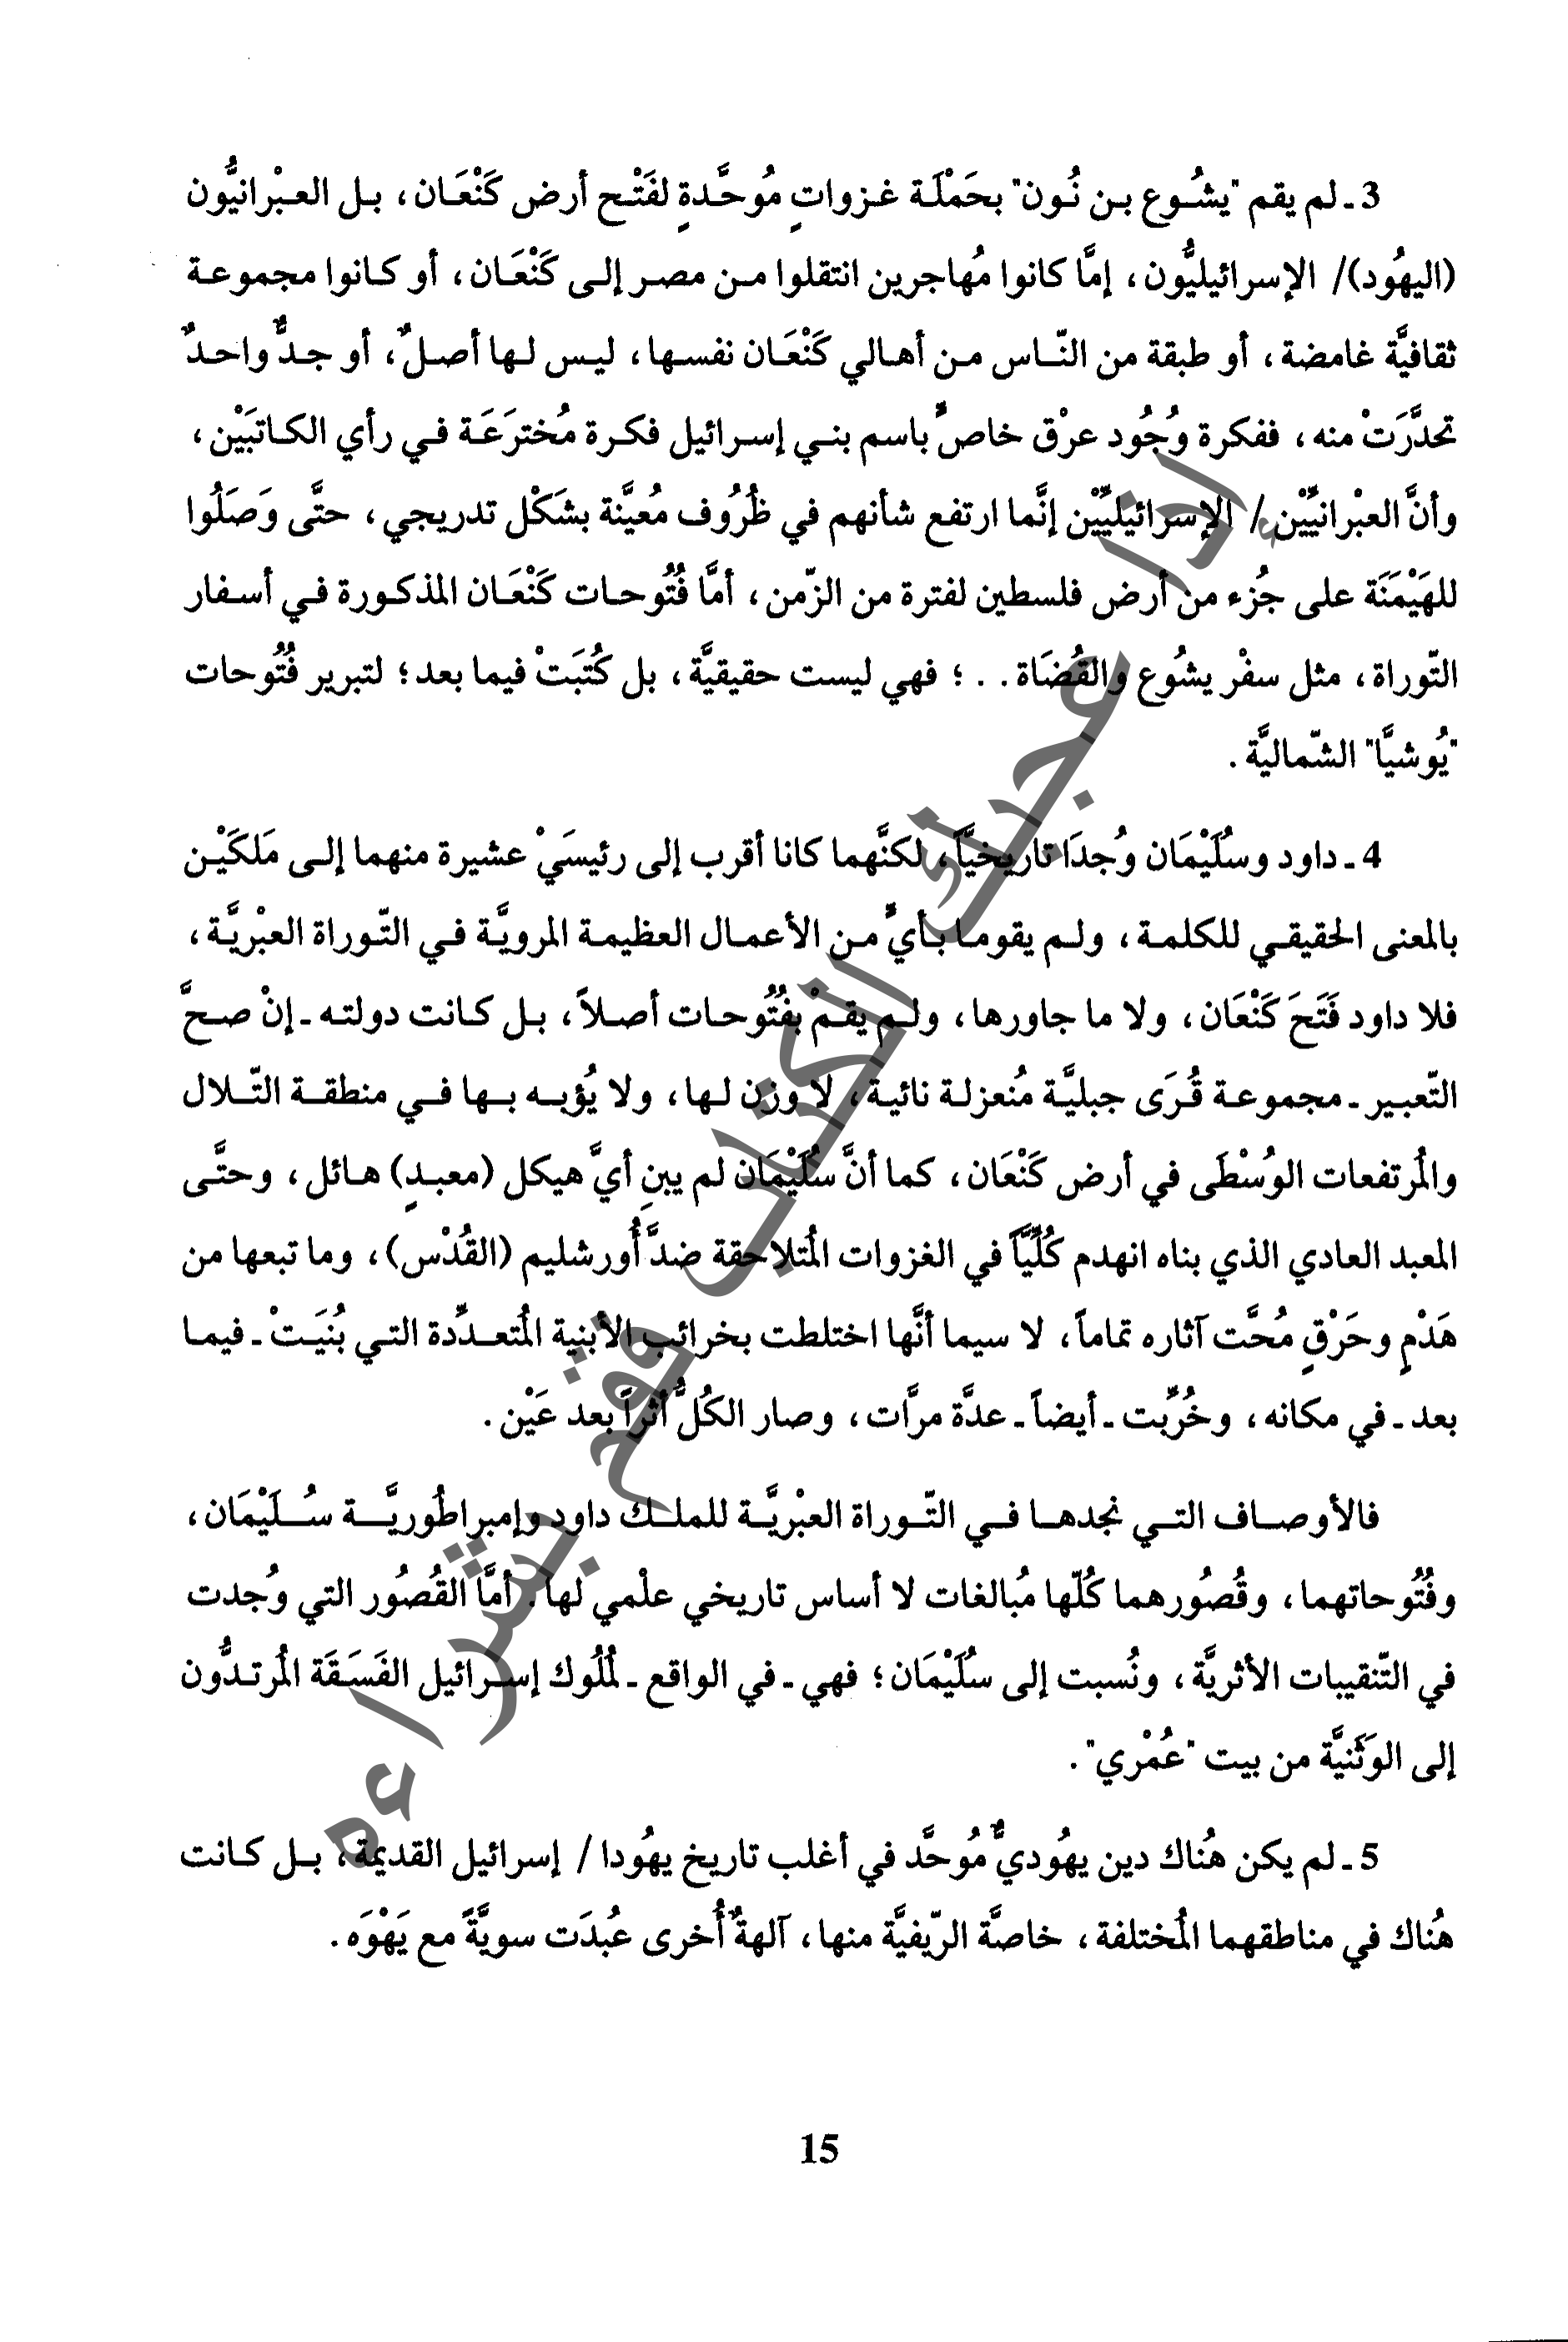 3 ـ لم يقم "يشُوع بن نُون" بحَمْلَة غزواتٍ مُوحَّدةٍ لفَتْح أرض كَنْعَان، بل العبْرانيُّون
(اليهُود)/ الإسرائيليُّون، إمَّا كانوا مُهاجرين انتقلوا من مصر إلى كَنْعَان، أو كانوا مجموعة
ثقافيَّة غامضة، أو طبقة من النّاس من أهالي كَنْعَان نفسها، ليس لها أصلٌ، أو جدٌّ واحدٌ
تحدَّرَتْ منه، ففكرة وُجُود عرْق خاصٍّ باسم بني إسرائيل فكرة مُخترَعَة في رأي الكاتبَيْن،
وأنَّ العبْرانيِّيْن / الإسرائيليِّيْن إنَّما ارتفع شأنهم في ظُرُوف مُعيَّنة بشَكْل تدريجي، حتَّى وَصَلُوا
للهَيْمَنَة على جُزء من أرض فلسطين لفترة من الزّمن، أمَّا فُتُوحات كَنْعَان المذكورة في أسفار
التّوراة، مثل سفْر يشُوع والقُضَاة. . ؛ فهي ليست حقيقيَّة، بل كُتبَتْ فيما بعد؛ لتبرير فُتُوحات
"يُوشيَّا" الشّماليَّة.
4 ـ داود وسُلَيْمَان وُجدَا تاريخيَّاً، لكنَّهما كانا أقرب إلى رئيسَيْ عشيرة منهما إلى مَلكَيْن
بالمعنى الحقيقي للكلمة، ولم يقوما بأيٍّ من الأعمال العظيمة المرويَّة في التّوراة العبْريَّة،
فلا داود فَتَحَ كَنْعَان، ولا ما جاورها، ولم يقمْ بفُتُوحات أصلاً، بل كانت دولته ـ إنْ صحَّ
التّعبير ـ مجموعة قُرَى جبليَّة مُنعزلة نائية، لا وزن لها، ولا يُؤبه بها في منطقة التّلال
والمُرتفعات الوُسْطَى في أرض كَنْعَان، كما أنَّ سُلَيْمَان لم يبنِ أيَّ هيكل (معبدٍ) هائل، وحتَّى
المعبد العادي الذي بناه انهدم كُلِّيَّاً في الغزوات المُتلاحقة ضدَّ أُورشليم (القُدْس)، وما تبعها من
هَدْمٍ وحَرْقٍ مُحَّت آثاره تماماً، لا سيما أنَّها اختلطت بخرائب الأبنية المُتعدِّدة التي بُنيَتْ ـ فيما
بعد ـ في مكانه، وخُرِّبت ـ أيضاً ـ عدَّة مرَّات، وصار الكُلُّ أثراً بعد عَيْن.
فالأوصاف التي نجدها في التّوراة العبْريَّة للملك داود وإمبراطُوريَّة سُلَيْمَان،
وفُتُوحاتهما، وقُصُورهما كُلّها مُبالغات لا أساس تاريخي علْمي لها. أمَّا القُصُور التي وُجدت
في التّنقيبات الأثريَّة، ونُسبت إلى سُلَيْمَان؛ فهي ـ في الواقع ـ لمُلُوك إسرائيل الفَسَقَة المُرتدُّون
إلى الوَثَنيَّة من بيت "عُمْري".
5 ـ لم يكن هُناك دين يهُوديٌّ مُوحَّد في أغلب تاريخ يهُودا / إسرائيل القديمة، بل كانت
هُناك في مناطقهما المُختلفة، خاصَّة الرّيفيَّة منها، آلهةٌ أُخرى عُبدَت سويَّةً مع يَهْوَه.
15
إذا أعجبك الكتاب فقم بشراءه